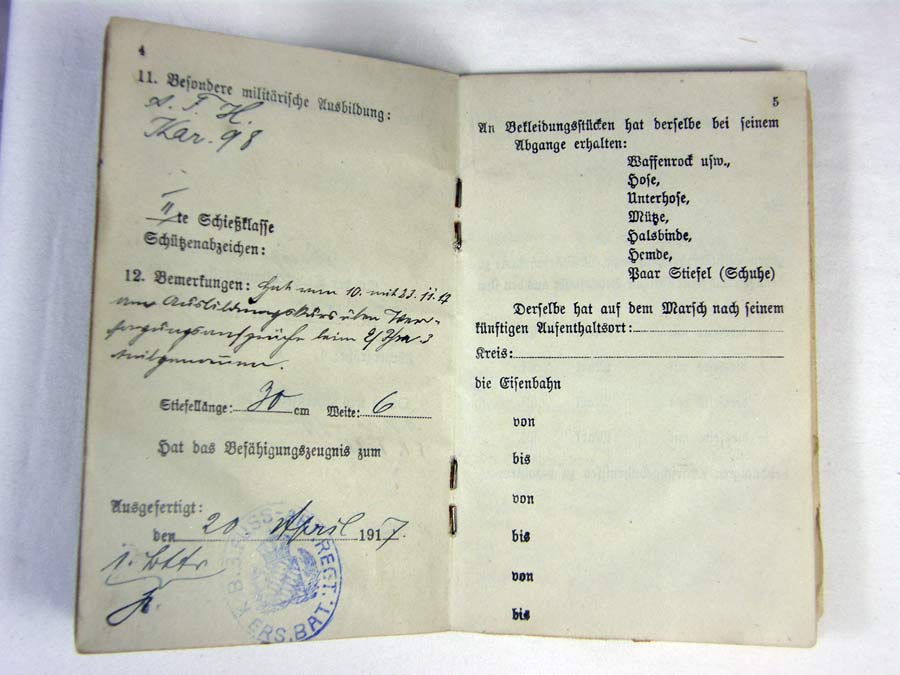 4
11. Besondere militärische Ausbildung:
s. F. H.
Kar. 98
II te Schießklasse
Schützenabzeichen:
12. Bemerkungen: Hat vom 10. mit 23. 11. 17
am Ausbildungskurs über Ver-
sorgungsansprüche beim
teilgenommen.
Stiefellänge: 30 cm Weite: 6
Hat das Befähigungszeugnis zum
Ausgefertigt:
den 20 April 1917.
ERS. BAT.
5
An Bekleidungsstücken hat derselbe bei seinem
Abgange erhalten:
Waffenrock usw.,
Hose,
Unterhose,
Mütze,
Halsbinde,
Hemde,
Paar Stiefel (Schuhe)
Derselbe hat auf dem Marsch nach seinem
künftigen Aufenthaltsort:
Kreis:
die Eisenbahn
von
bis
von
bis
von
bis